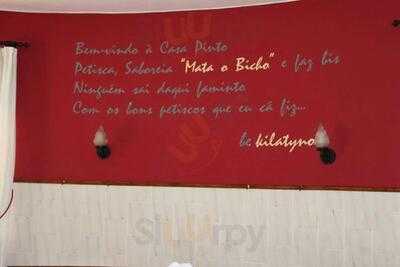 Bem-vindo à Casa Pinto
Petisca, Saboreia "Mata o Bicho" e faz bis
Ninguém sai daqui faminto
Com os bons petiscos que eu cá fiz...
bc kilatyno
Sirupy